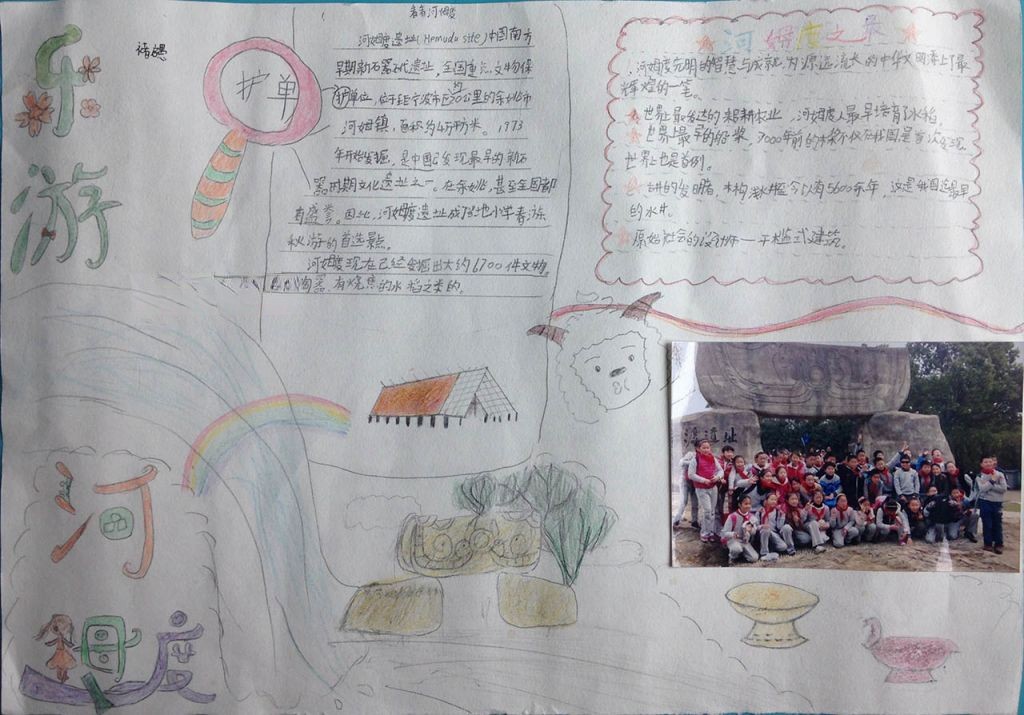 乐游
河姆度
护单
河姆度遗址(Hemudu site)中国南方
早期新石器时代遗址,全国重点文物保
护单位,位于距宁波市区约20公里的余姚市
河姆镇,面积为4万平米。1973
年开始发掘,是中国已发现最早的新石
器时期文化遗址之一。在余姚,甚至全国都
有盛誉。因此,河姆度遗址成了当地小学春游
秋游的首选景点。
河姆度现在已经发掘出大约6700件文物,
陶器,有烧焦的水稻之类的。
河姆度之最
河姆度先明的智慧与成就,为源远流长的中华文明添上了最
辉煌的一笔。
世界上最发达的耜耕农业,河姆度人最早培育水稻。
世界上最早的船桨,7000年前的木桨不仅在我国是首次发现,
世界上也是首例。
井的发明者,木构水井距今以有5600余年,这是我国迄今最早
的水井。
原始社会的设计师——干栏式建筑。
遗址